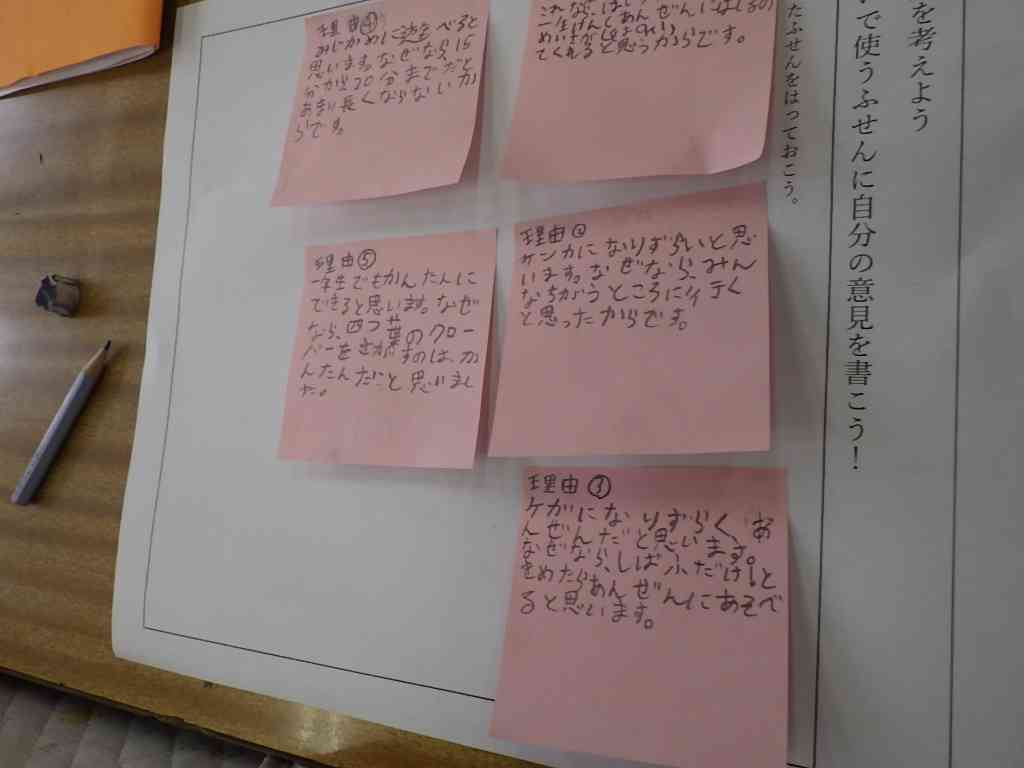 を考えよう
で使うふせんに自分の意見を書こう!
たふせんをはっておこう。
てくれると思うからです。
理由④
思います。なぜなら、15
分から20分までだと
あまり長くならないか
らです。
理由②
ケンカになりずらいと思
います。なぜなら、みん
なちがうところに行く
と思ったからです。
理由⑤
一年生でもかんたんに
できると思います。なぜ
なら、四つ葉のクロー
バーをさがすのは、か
んたんだと思いまし
た。
理由①
ケガになりずらく、あ
んぜんだと思います。
なぜなら、しばふだけと
きめたらあんぜんにあそべ
ると思います。